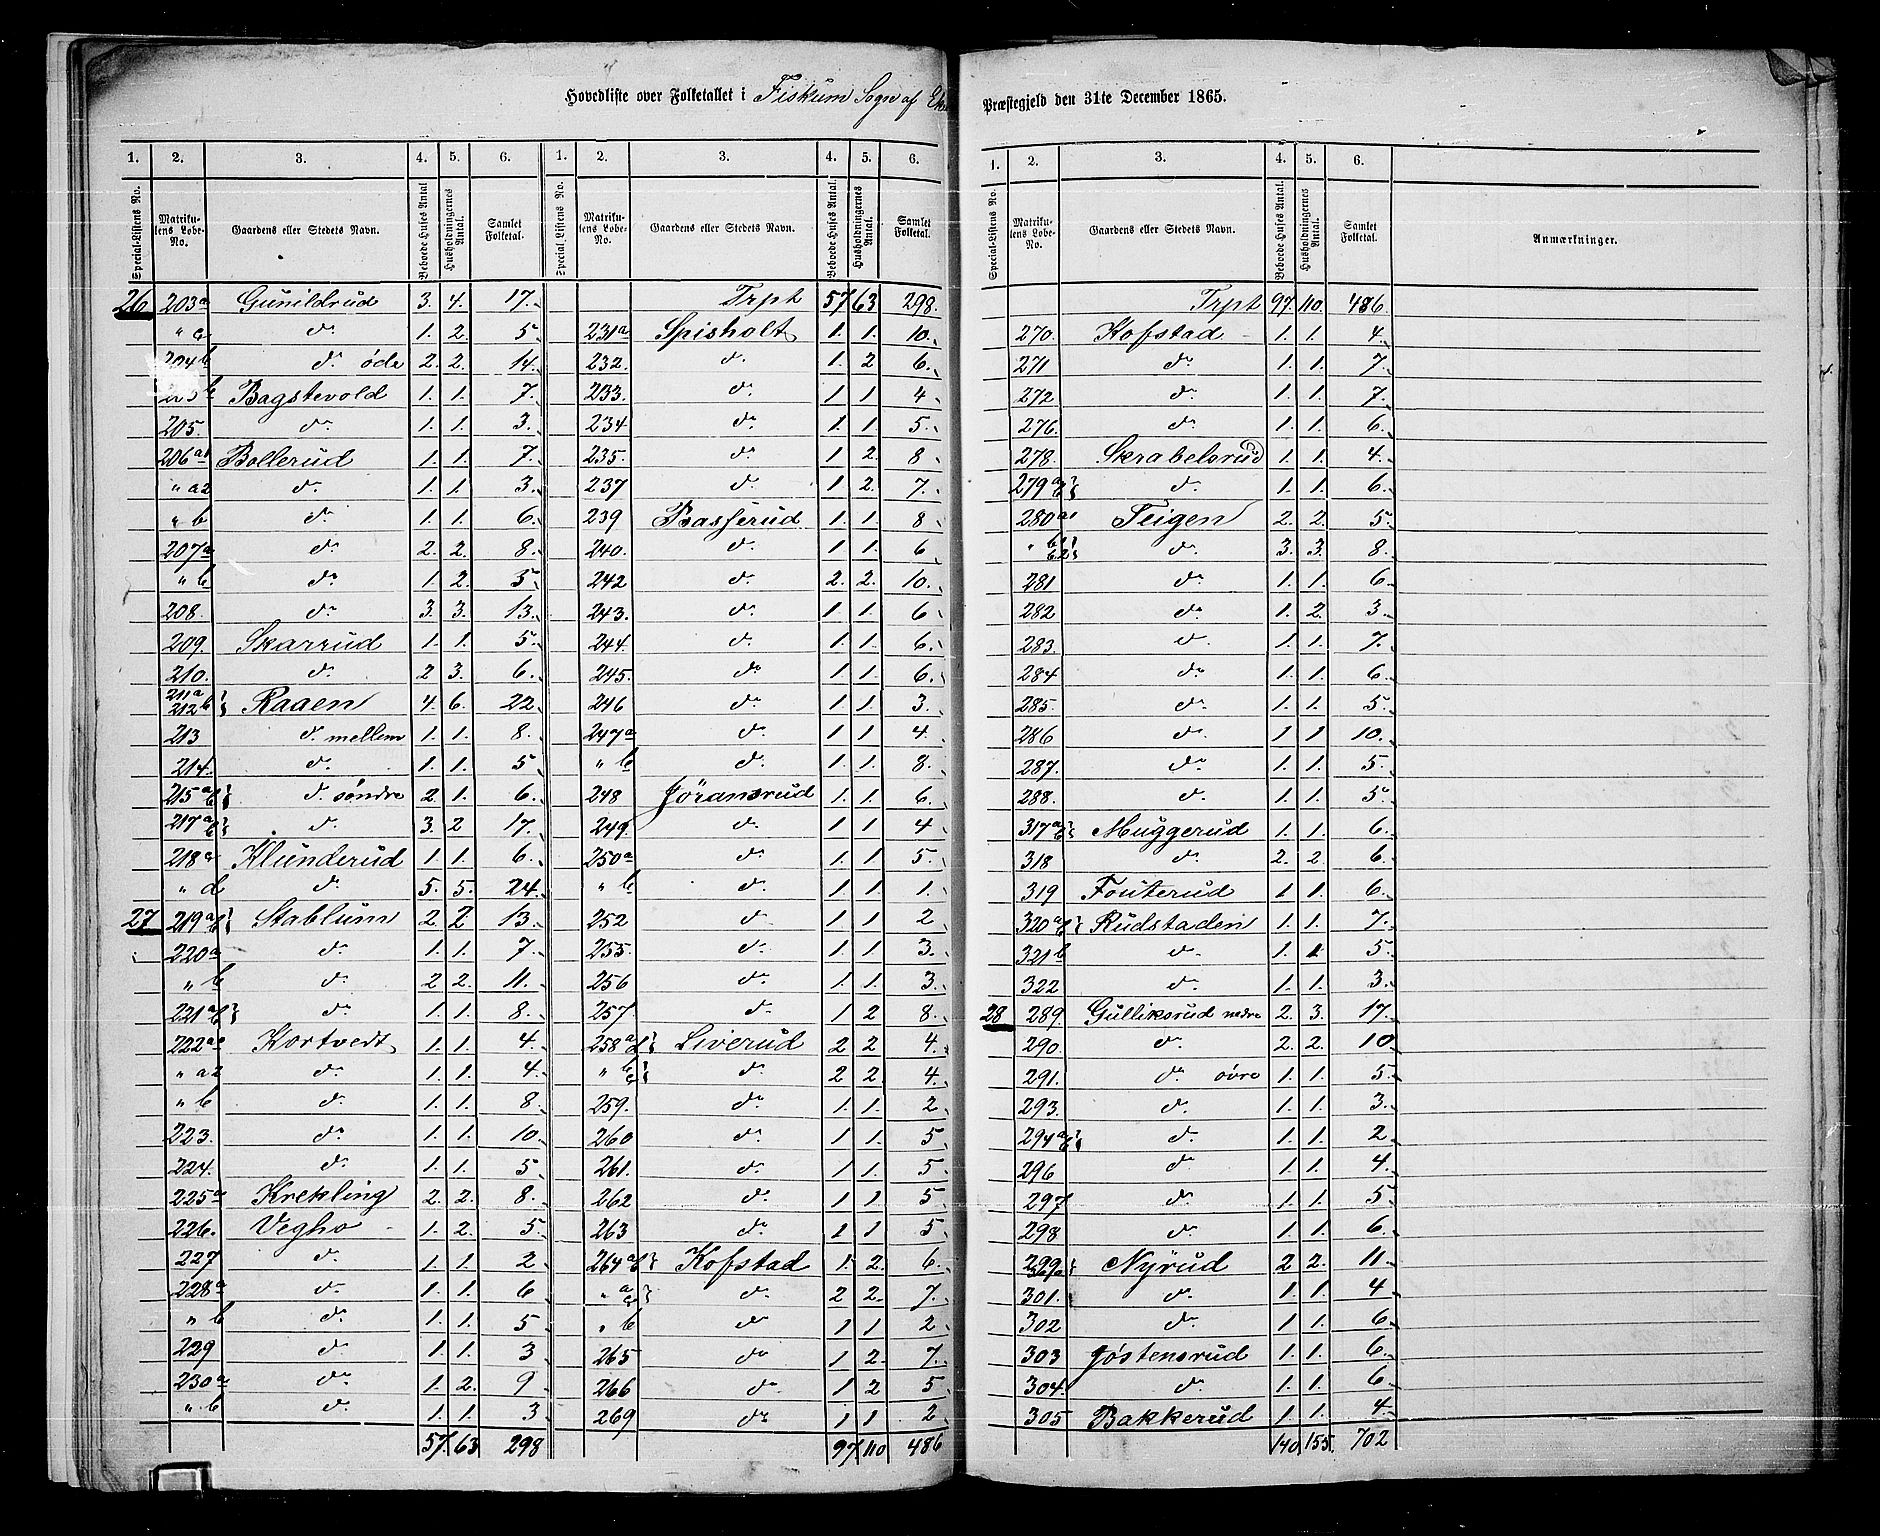 Hovedliste over Folketallet i Fiskum Sogn af Præstegjeld den 31te December 1865.
1. 2. 3. 4. 5. 6. 1. 2. 3. 4. 5. 6.
Special-Listens No. Matrikulens Løbe-No. Gaardens eller Stedets Navn. Beboede Huses Antal. Husholdningernes Antal. Samlet Folketal. Special Listens No. Matrikulens Løbe-No. Gaardens eller Stedets Navn. Beboede Huses Antal. Husholdningernes Antal. Samlet Folketal.
26 203a Gunildrud 3. 4. 17.
" c do 1. 2. 5
204b do øde 2. 2. 14.
b Bagstevold 1. 1. 7.
205. do 1. 1. 3.
206a1 Bollerud 1. 1. 7.
" a2 do 1. 1. 3.
" b do 1. 1. 6.
207a do 2. 2. 8.
" b do 1. 2. 5
208. do 3. 3. 13.
209. Skarrud 1. 1. 5.
210. do 2 3. 6.
211a 212b } Raaen 4. 6. 22
213 do mellem 1. 1. 8.
214. do 1. 1. 5
215ab } do søndre 2. 1. 6.
217ab } do 3. 2 17.
218a Klunderud 1. 1. 6.
" d do 5. 5. 24.
27 219ab } Stablum 2. 2. 13.
220a do 1. 1. 7.
" b do 2 2. 11.
221ab } do 1. 1. 8.
222a1 Kortvedt 1. 1. 4.
" a2 do 1. 1. 4.
" b do 1. 1. 8.
223. do 1. 1. 10.
224. do 1. 1. 5
225a Krekling 2. 2. 8.
226. Vegho 1. 2. 5
227 do 1. 1. 2
228a do 1. 1. 6
" b do 1. 1. 5
229 do 1. 1. 3
230a do 1. 2. 9
" b do 1. 1. 3
57. 63 298
Trpt 57 63 298.
231a Spisholt 1. 1. 10.
232. do 1. 2 6.
233. do 1 1 4
234 do 1. 1. 5.
235. do 1 2. 8
237 do 1 2. 7.
239 Basserud 1. 1. 8
240. do 1 1. 6
242 do 2. 2. 10.
243. do 1 1. 6
244. do 1. 1. 6.
245. do 1 1 6.
246 do 1. 1. 3.
247a do 1. 1. 4.
" b do 1. 1. 8.
248 Jøransrud 1. 1. 6.
249. do 1. 1 4
250a do 1. 1 5.
" b do 1. 1. 1.
252 do 1 1 2
255. do 1. 1. 3.
256 do 1. 1. 3.
257. do 1 2 8.
258a } Liverud 2 2 4.
" b c } do 2 2. 4.
259. do 1. 1. 2
260 do 1 1. 5
261. do 1 1. 5.
262 do 1 1 5
263 do 1 1 5
264ab } Kofstad 1. 2. 6.
" do 2 2. 7.
" b do 1 1 2
265 do 1 2. 7.
266 do 1 2 5
269 do 1 1 2
97. 110 486
1. 2. 3. 4. 5. 6.
Special-Listens No. Matrikulens Løbe-No. Gaardens eller Stedets Navn. Beboede Huses Antal. Husholdningernes Antal. Samlet Folketal. Anmærkninger.
Trpt 97. 110. 486.
270. Kofstad 1. 1. 4.
271 do 1. 1. 7.
272 do 1. 1. 7.
276. do 1. 1. 6.
278. Skrabelsrud 1. 1. 4.
279ab } do 1. 1. 6.
280a1 Teigen 2. 2. 5.
" do 3. 3. 8.
281 do 1. 1. 6
282 do 1. 2. 3.
283 do 1. 1. 7.
284 do 1. 1. 6
285. do 1. 1. 5.
286 do 1 1 10.
287. do 1. 1. 5.
288. do 1. 1. 5
317ab } Muggerud 1. 1. 6.
318 do 2. 2. 6.
319 Fouterud 1 1. 6.
320ab } Rudstaden 1. 1. 7.
321b do 1. 1 5.
322 do 1. 1. 3.
28 289. Gulliksrud nedre 2. 3. 17.
290. do 2. 2. 10
291. do øvre 1. 1. 5.
293. do 1. 1. 3.
294ab } do 1. 1. 2
296 do 1. 1. 4.
297 do 1. 1. 5
298 do 1. 1. 6.
299 } Nyrud 2 2. 11.
301. do 1. 1. 4
302 do 1. 1. 6
303 Jøstensrud 1. 1. 6.
304. do 1. 1. 6
305 Bakkerud 1. 1. 4.
140. 155. 702